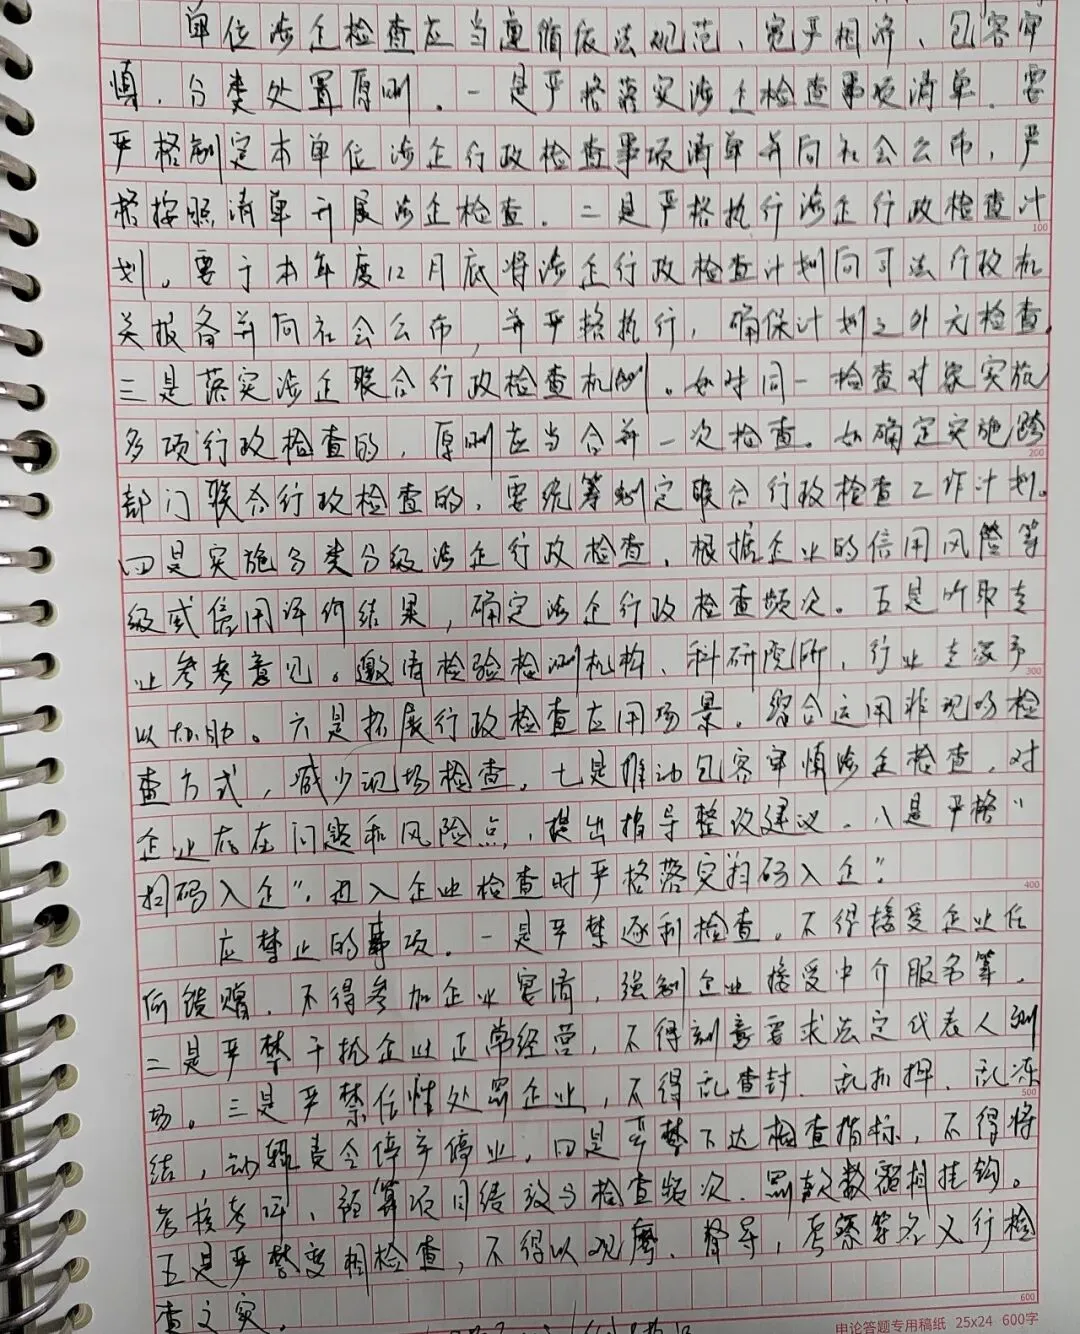 单位涉企检查应当遵循依法规范、宽严相济、包容审
慎、分类处置原则。一是严格落实涉企检查事项清单、要
严格制定本单位涉企行政检查事项清单并向社会公布，严
格按照清单开展涉企检查。二是严格执行涉企行政检查计
100
划。要于本年度12月底将涉企行政检查计划向司法行政机
关报备并向社会公布，并严格执行，确保计划之外无检查。
三是落实涉企联合行政检查机制。如对同一检查对象实施
多项行政检查的，原则应当合并一次检查。如确定实施跨
200
部门联合行政检查的，要统筹制定联合行政检查工作计划。
四是实施分类分级涉企行政检查，根据企业的信用风险等
级或信用评价结果，确定涉企行政检查频次。五是听取专
业参考意见。邀请检验检测机构、科研院所、行业专家予
300
以协助。六是拓展行政检查应用场景。综合运用非现场检
查方式，减少现场检查。七是推动包容审慎涉企检查，对
企业存在问题和风险点，提出指导整改建议。八是严格“
扫码入企”，进入企业检查时严格落实扫码入企”。
400
应禁止的事项。一是严禁逐利检查。不得接受企业任
何馈赠，不得参加企业宴请，强制企业接受中介服务等。
二是严禁干扰企业正常经营，不得刻意要求法定代表人到
场。三是严禁任性处罚企业，不得乱查封、乱扣押、乱冻
500
结，动辄责令停产停业。四是严禁下达检查指标，不得将
考核考评、预算项目绩效与检查频次、罚款数额相挂钩。
五是严禁变相检查，不得以观摩、督导，考察等名义行检
600
查之实。
申论答题专用稿纸 25x24 600字